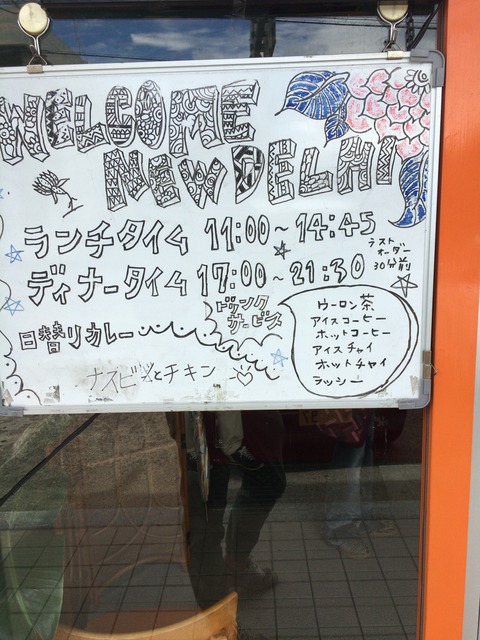 WELCOME
NEWDELHI
ランチタイム 11:00~14:45
ディナータイム 17:00~21:30
ラスト
オーダー
30分前
日替りカレー
ドリンク
サービス
ウーロン茶
アイスコーヒー
ホットコーヒー
アイスチャイ
ホットチャイ
ラッシー
ナスビとチキン